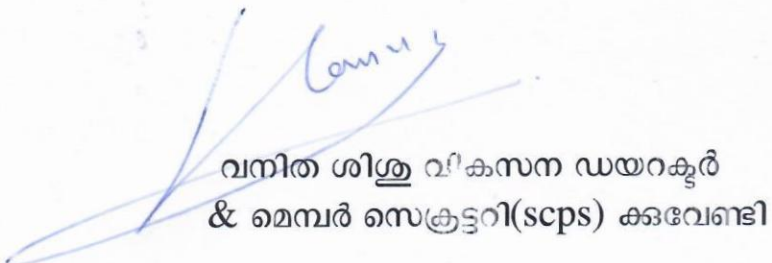 വനിത ശിശു വികസന ഡയറക്ടർ
& മെമ്പർ സെക്രട്ടറി(scps) ക്കുവേണ്ടി